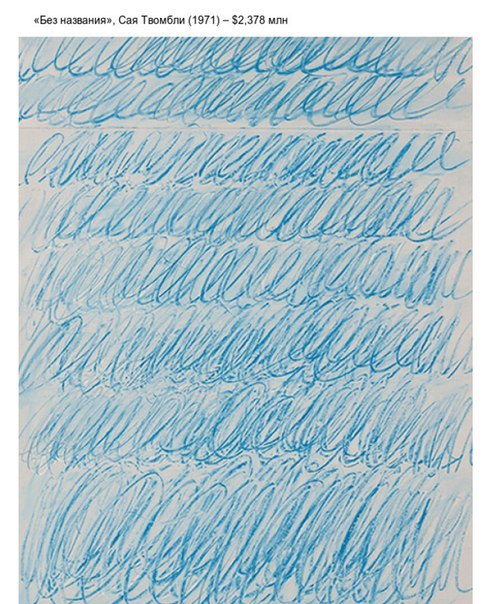 «Без названия», Сая Твомбли (1971) – $2,378 млн